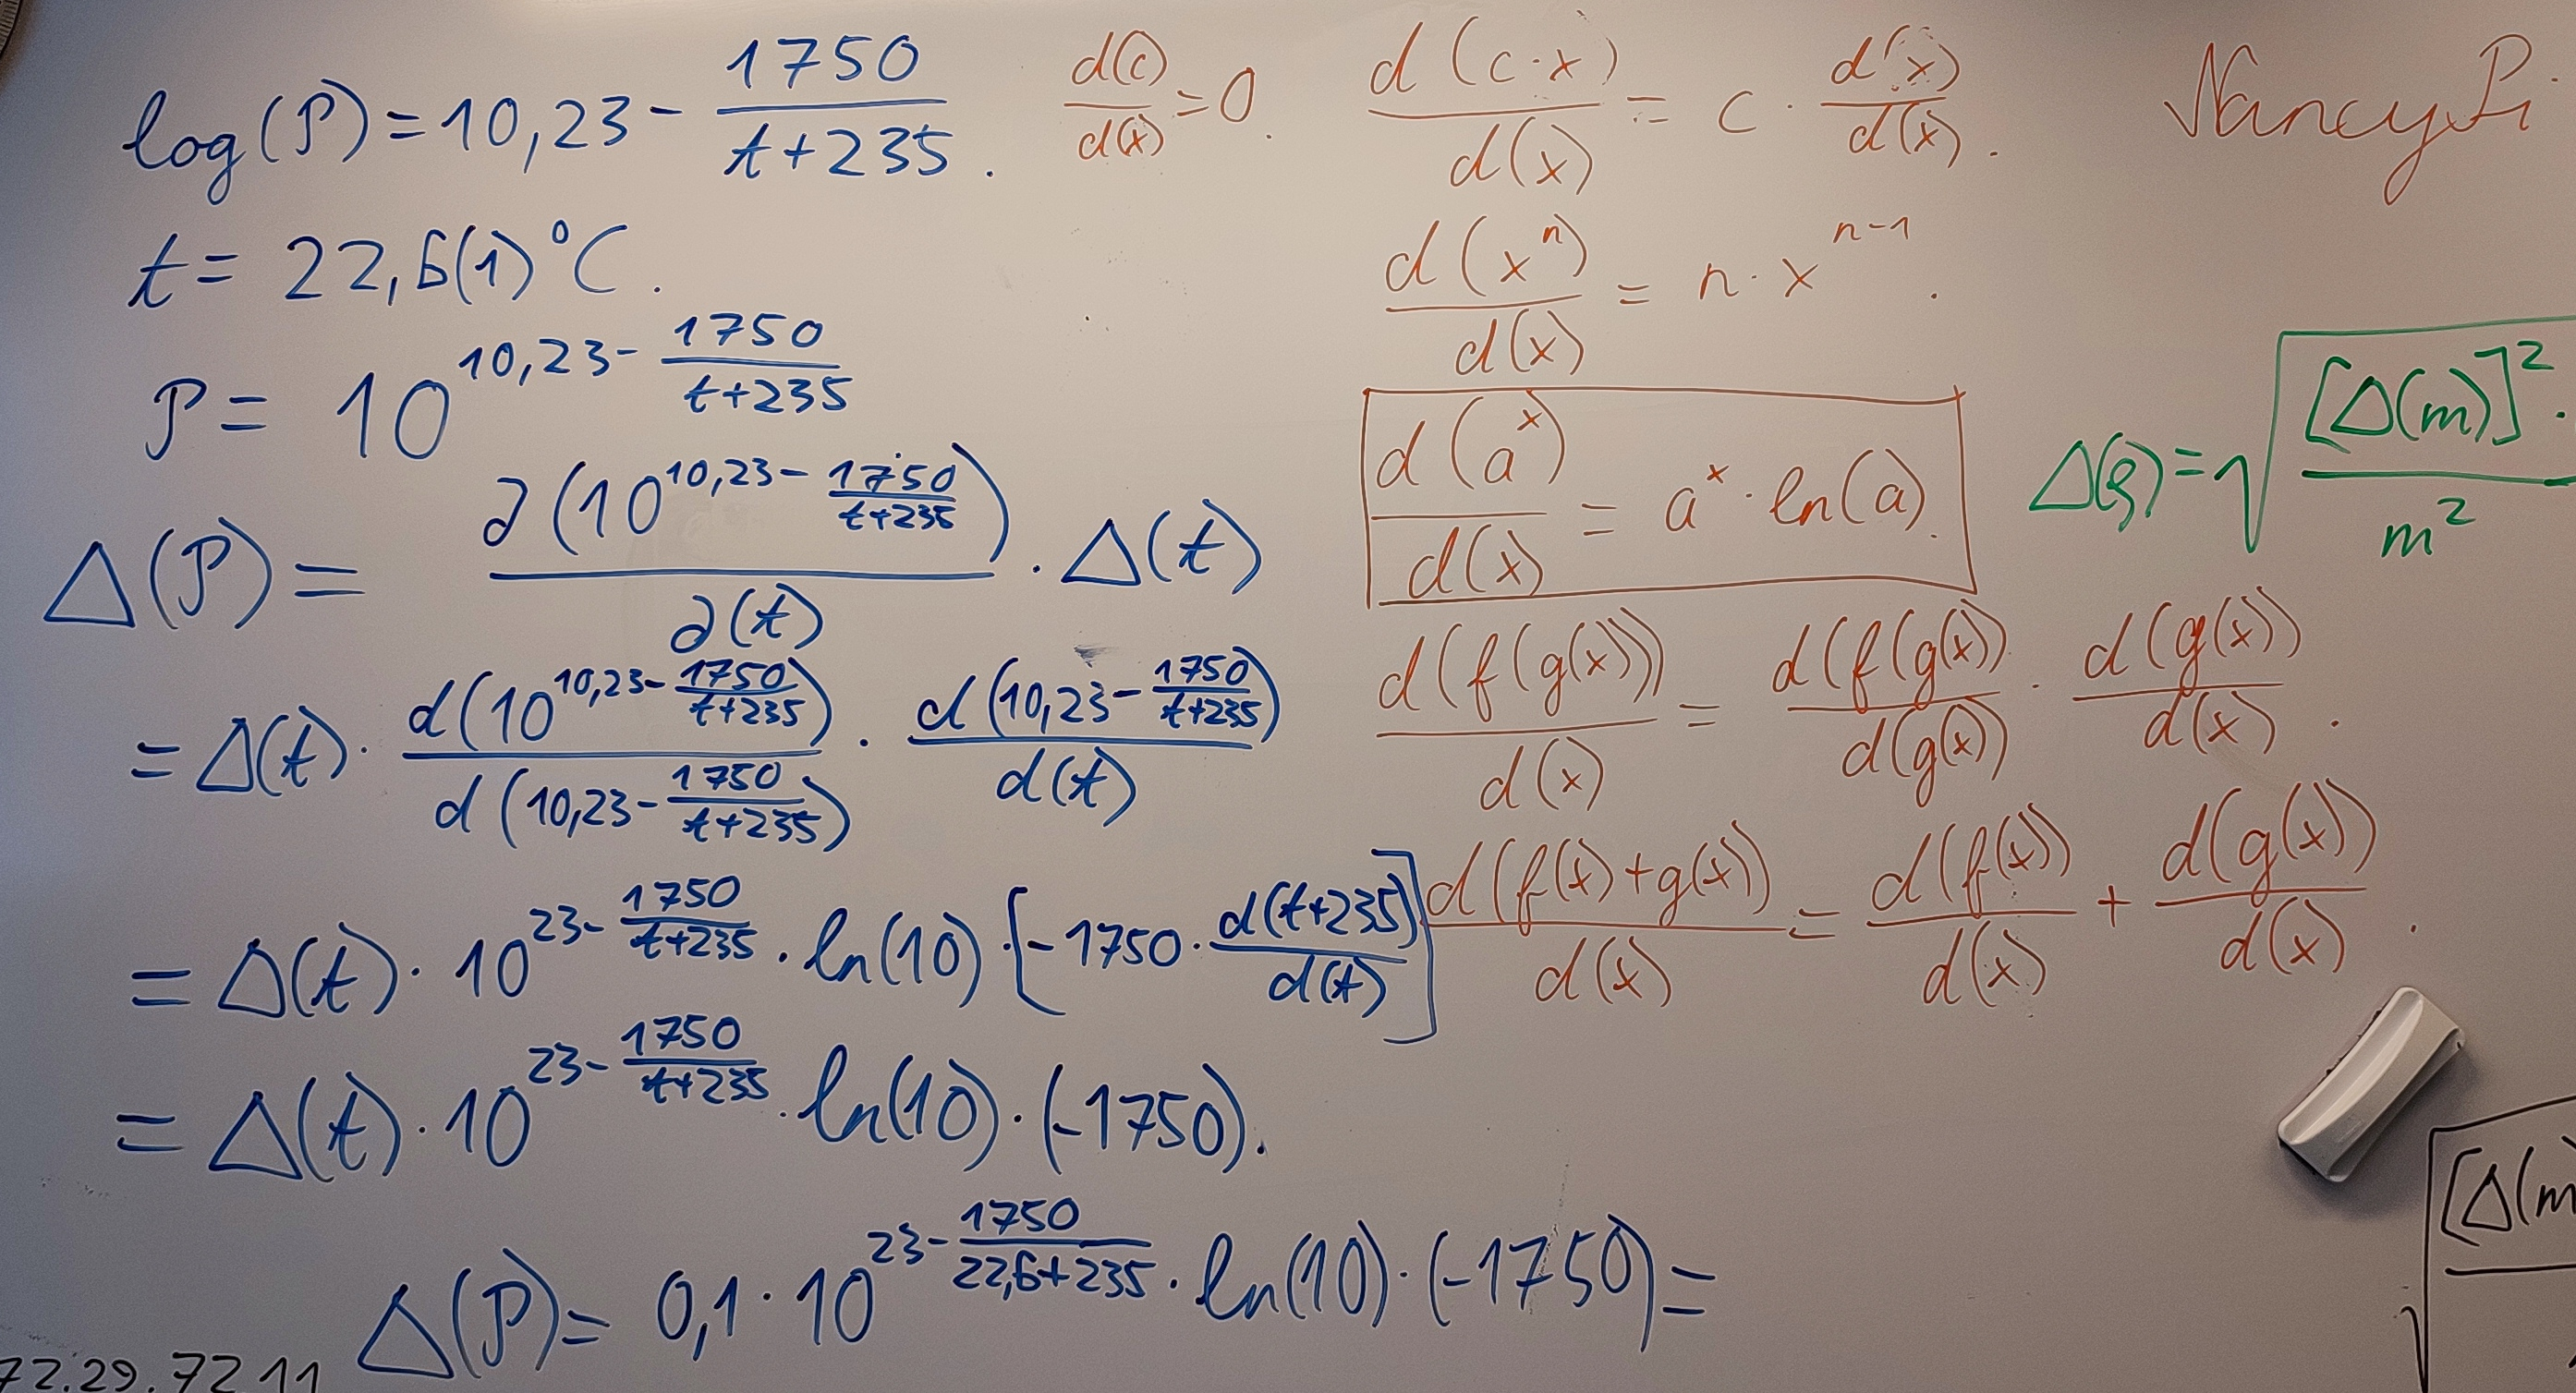 log(P) = 10,23 - 1750/(t+235).
t = 22,6(1) °C.
P = 10^(10,23 - 1750/(t+235))
Δ(P) = ∂(10^(10,23 - 1750/(t+235)))/∂(t) · Δ(t)
= Δ(t) · d(10^(10,23 - 1750/(t+235)))/d(10,23 - 1750/(t+235)) · d(10,23 - 1750/(t+235))/d(t)
= Δ(t) · 10^(23 - 1750/(t+235)) · ln(10) · [-1750 · d(t+235)/d(t)]
= Δ(t) · 10^(23 - 1750/(t+235)) · ln(10) · (-1750).
Δ(P) = 0,1 · 10^(23 - 1750/(22,6+235)) · ln(10) · (-1750) =
72.29.72.11
d(c)/d(x) = 0.
d(c·x)/d(x) = c · d(x)/d(x).
d(x^n)/d(x) = n · x^(n-1).
d(a^x)/d(x) = a^x · ln(a).
d(f(g(x)))/d(x) = d(f(g(x))/d(g(x)) · d(g(x))/d(x).
d(f(x)+g(x))/d(x) = d(f(x))/d(x) + d(g(x))/d(x).
NancyPi
Δ(ρ) = √[Δ(m)]² ·/m²
[Δ(m